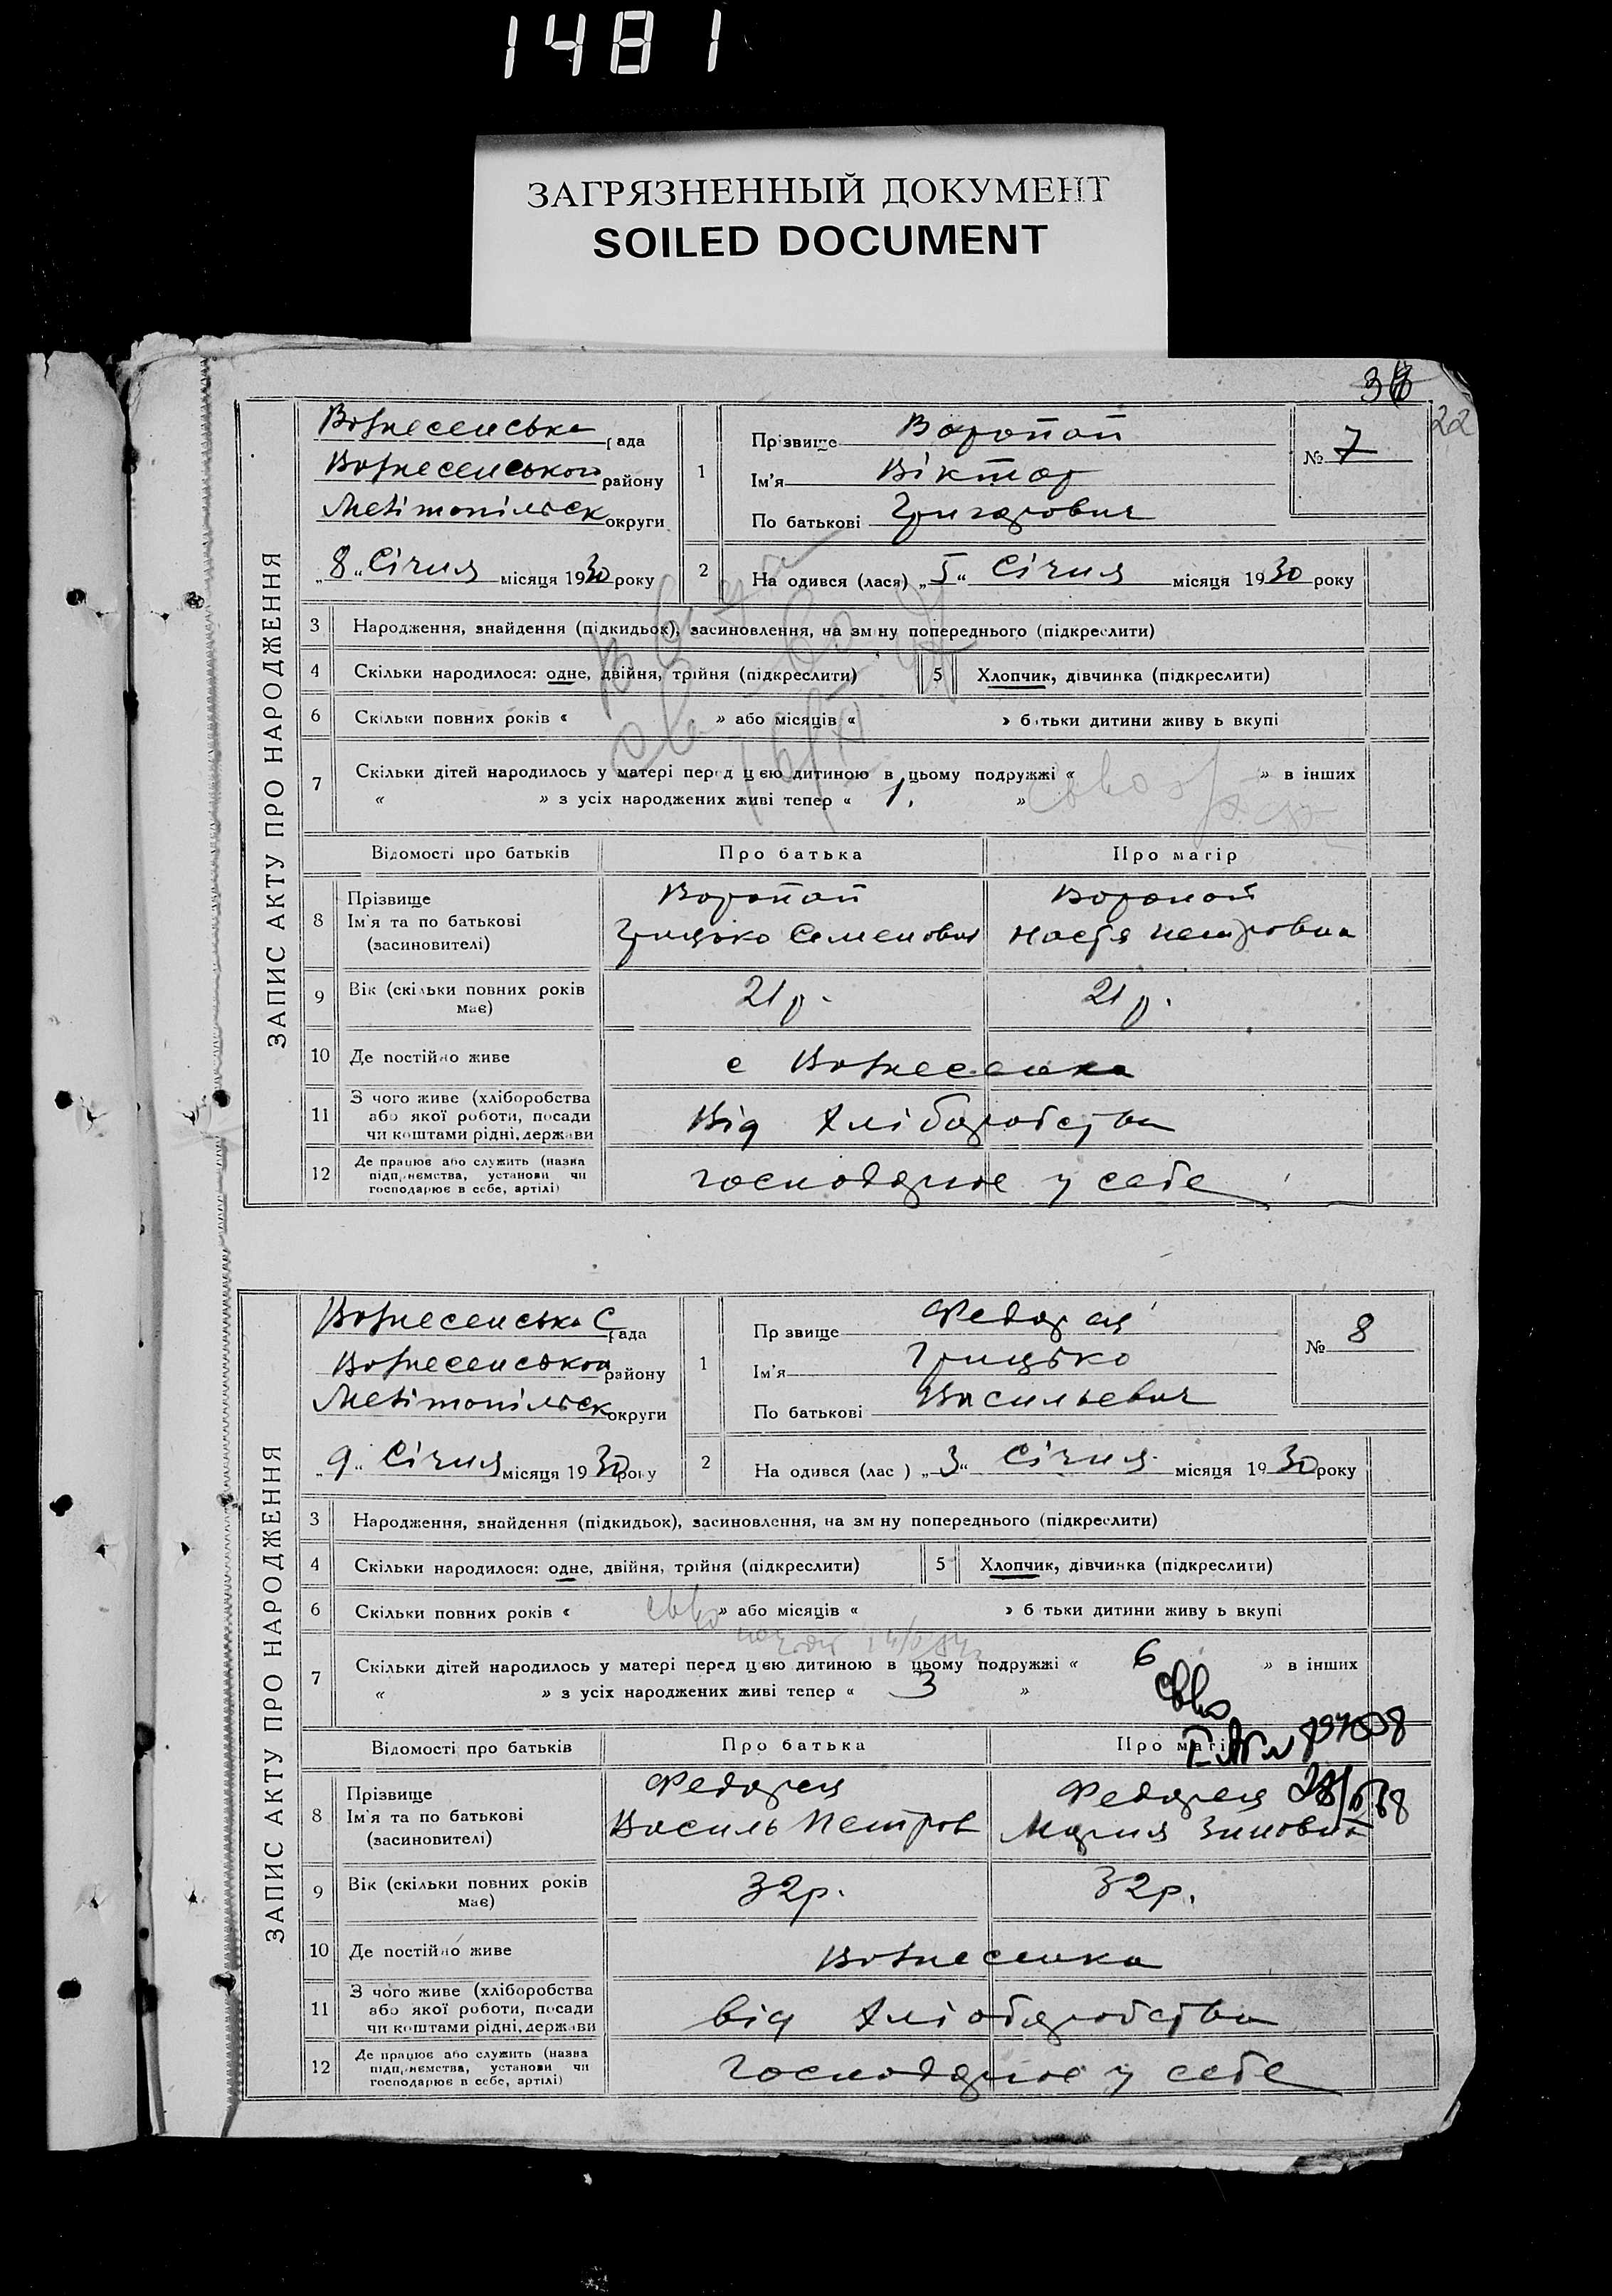 1481
ЗАГРЯЗНЕННЫЙ ДОКУМЕНТ
SOILED DOCUMENT
22
ЗАПИС АКТУ ПРО НАРОДЖЕННЯ
Вознесенська рада
Вознесенського району
Мелітопільск округи
„8“ Січня місяця 1930 року
1
Прізвище Воропай
Ім'я Віктор
По батькові Григорович
№ 7
2
На одився (лася) „5“ Січня місяця 1930 року
3 Народження, знайдення (підкидьок), засиновлення, на зм ну попереднього (підкреслити)
4 Скільки народилося: одне, двійня, трійня (підкреслити) 5 Хлопчик, дівчинка (підкреслити)
6 Скільки повних років « » або місяців « » батьки дитини живу ь вкупі
7 Скільки дітей народилось у матері перед цією дитиною в цьому подружжі « » в інших
« » з усіх народжених живі тепер « 1. »
Відомості про батьків Про батька Про матір
8 Прізвище
Ім'я та по батькові
(засиновителі)
Воропай
Грицько Семенович
Воропай
Настя Петровна
9 Вік (скільки повних років має) 21 р. 21 р.
10 Де постійно живе с Вознесенка
11 З чого живе (хліборобства
або якої роботи, посади
чи коштами рідні, держави
Від хліборобства
12 Де працює або служить (назва
підприємства, установи чи
господарює в себе, артілі)
господарює у себе
ЗАПИС АКТУ ПРО НАРОДЖЕННЯ
Вознесенська С рада
Вознесенського району
Мелітопільск округи
„9“ Січня місяця 1930 року
1
Пр звище Федорец
Ім'я Грицько
По батькові Васильевич
№ 8
2
На одився (лас ) „3“ Січня місяця 1930 року
3 Народження, знайдення (підкидьок), засиновлення, на зм ну попереднього (підкреслити)
4 Скільки народилося: одне, двійня, трійня (підкреслити) 5 Хлопчик, дівчинка (підкреслити)
6 Скільки повних років « » або місяців « » б тьки дитини живу ь вкупі
7 Скільки дітей народилось у матері перед цією дитиною в цьому подружжі « 6 » в інших
« » з усіх народжених живі тепер « 3 »
Відомості про батьків Про батька Про матір
8 Прізвище
Ім'я та по батькові
(засиновителі)
Федорец
Василь Петров
Федорец
Мария Зиновна
9 Вік (скільки повних років має) 32 р. 32 р.
10 Де постійно живе Вознесенка
11 З чого живе (хліборобства
або якої роботи, посади
чи коштами рідні, держави
від хліоборобства
12 Де працює або служить (назва
підприємства, установи чи
господарює в себе, артілі)
Господарює у себе